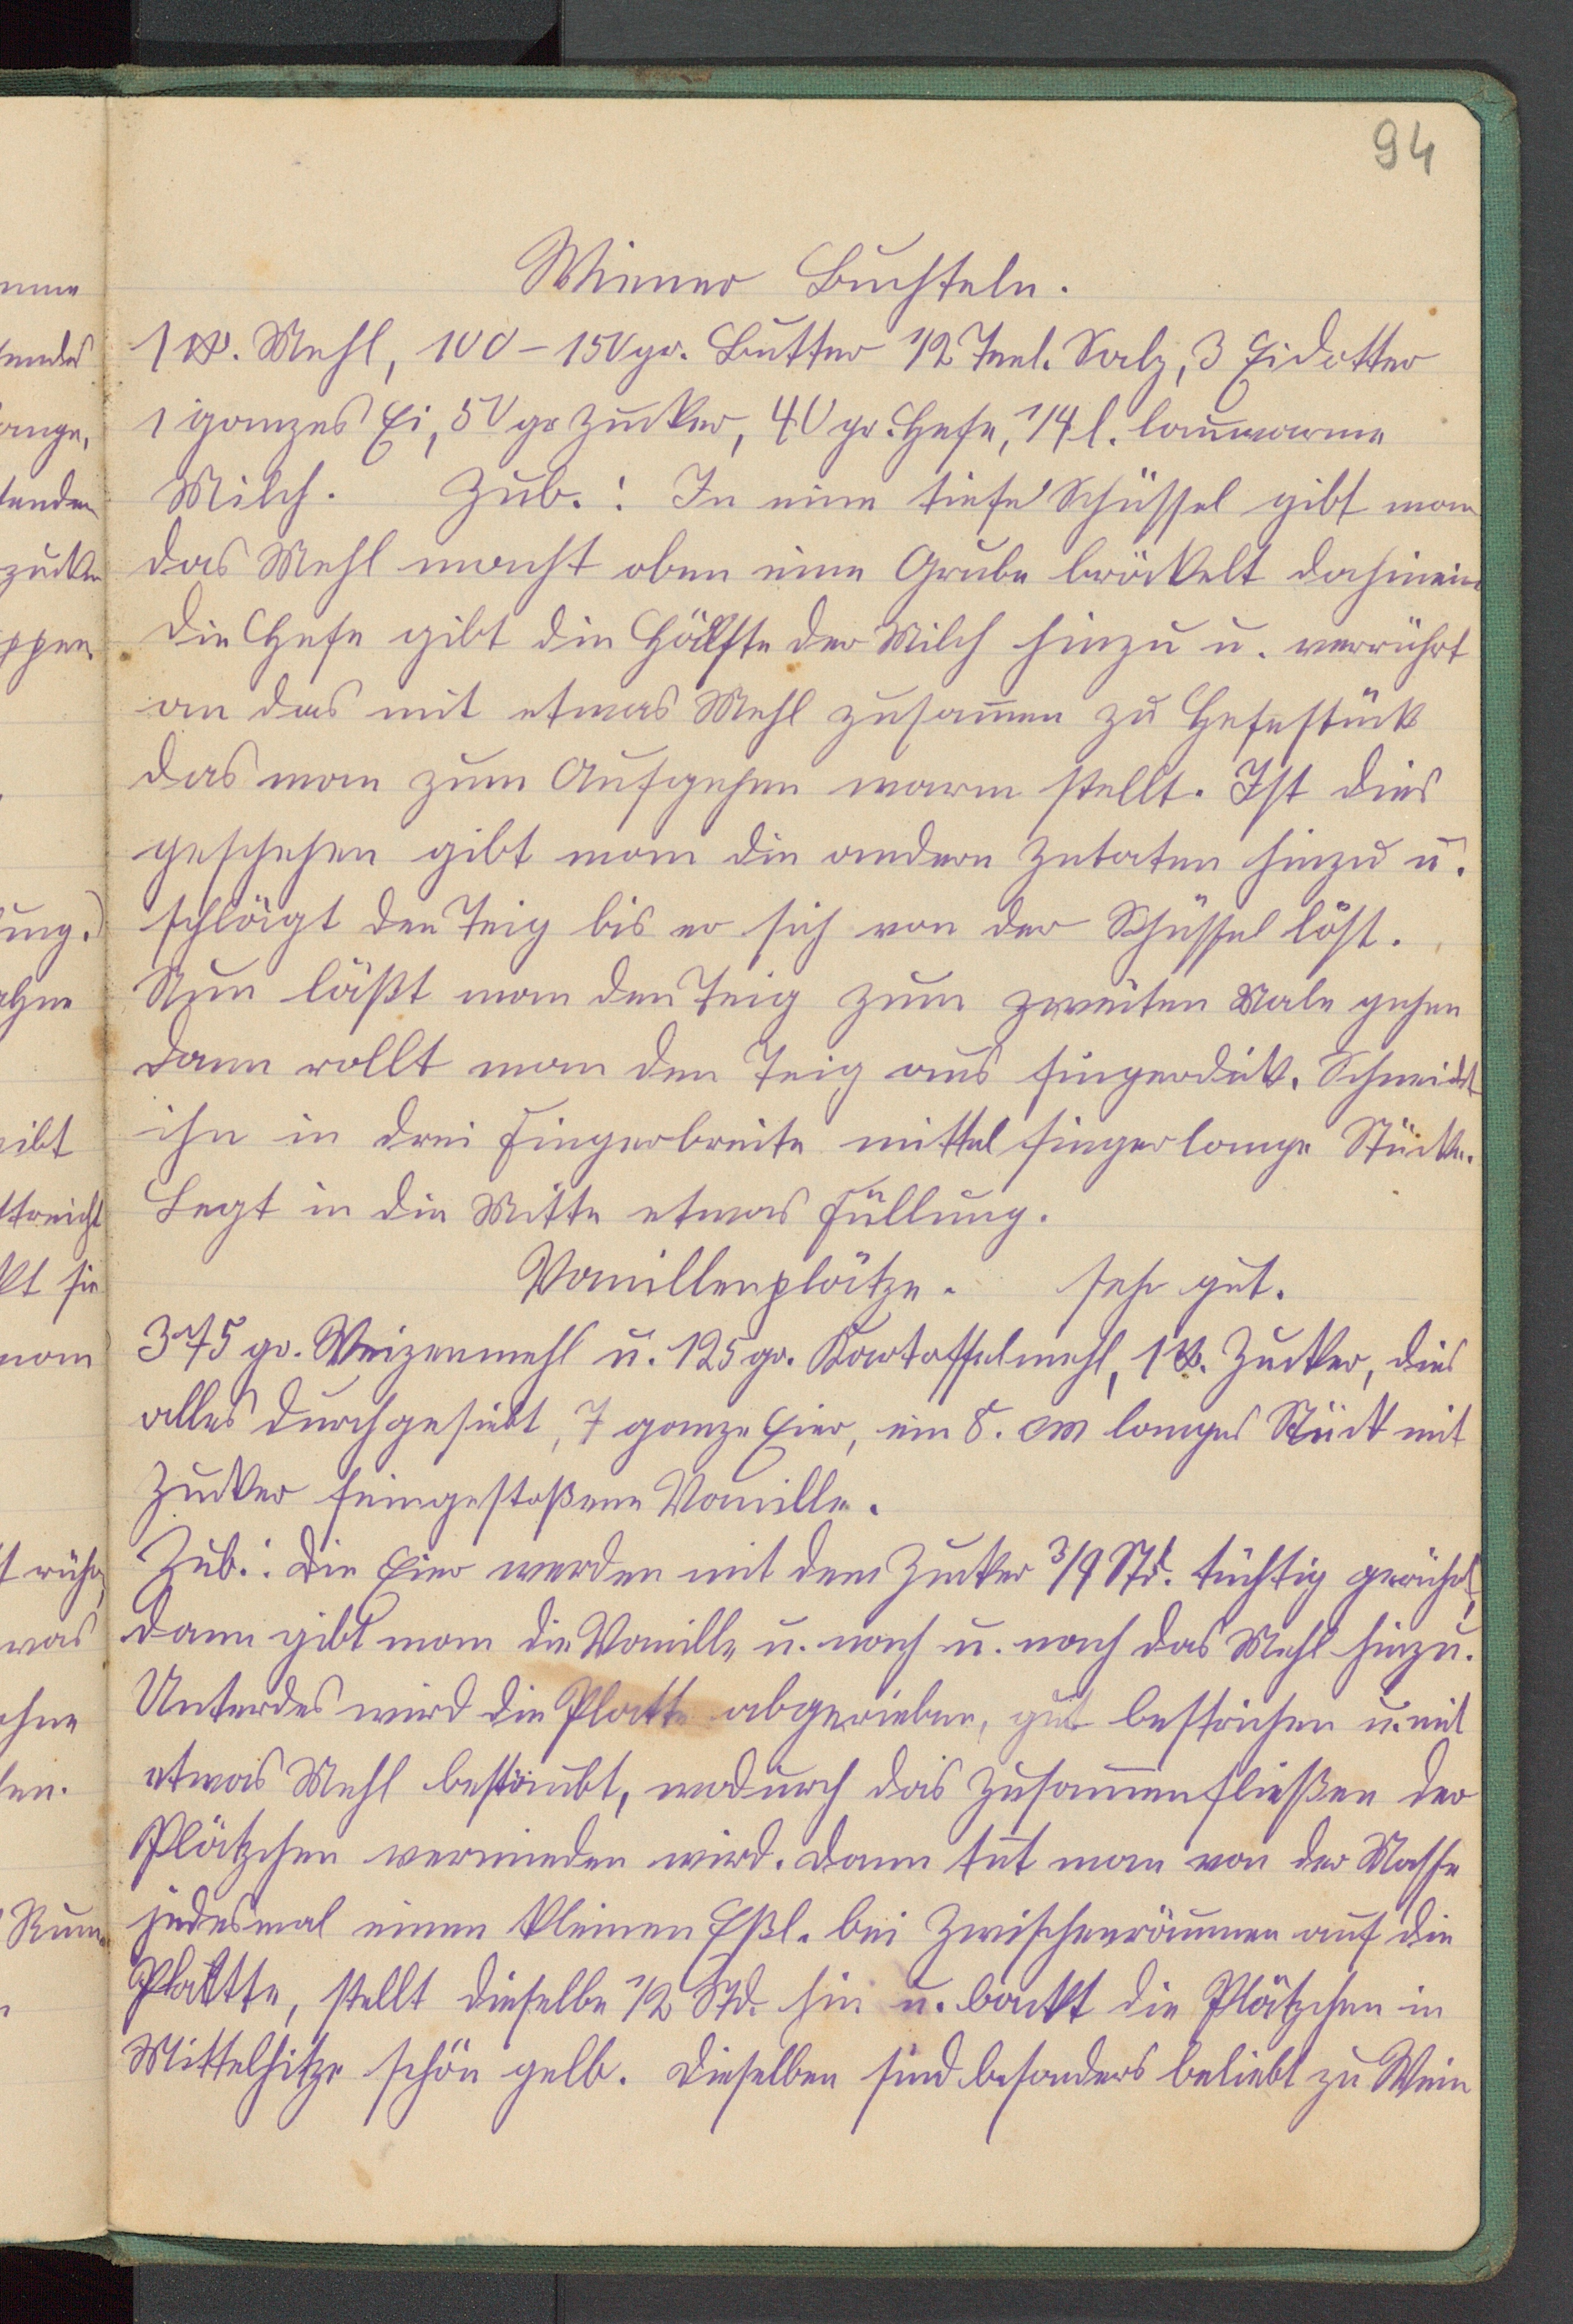 94
Wiener Buchteln.
1 ℔. Mehl, 100 - 150 gr. Butter 1/2 Teel. Salz, 3 Eidotter
1 ganzes Ei, 50 gr Zucker, 40 gr. Hefe, 1/4 l. lauwarme
Milch. Zub.: In eine tiefe Schüssel gibt man
das Mehl macht oben eine Grube bröckelt dahinein
die Hefe gibt die Hälfte der Milch hinzu u. verrührt
an das mit etwas Mehl zusam̄en zu Hefestück
das man zum Aufgehen warm stellt. Ist dies
geschehen gibt man die andern Zutaten hinzu u.
schlägt den Teig bis er sich von der Schüssel löst.
Nun läßt man den Teig zum zweiten Male gehen
dann rollt man den Teig aus fingerdick. Schneidet
ihn in drei Fingerbreite mittelfingerlange Stücke.
Legt in die Mitte etwas Füllung.
Vanillenplätze. sehr gut.
375 gr. Weizenmehl u. 125 gr. Kartoffelmehl, 1 ℔. Zucker, dies
alles durchgesiebt, 7 ganze Eier, ein 8. cm langes Stück mit
Zucker feingestoßene Vanille.
Zub.: Die Eier werden mit dem Zucker 3/4 Std. tüchtig gerührt,
dann gibt man die Vanille u. nach u. nach das Mehl hinzu.
Unterdes wird die Platte abgerieben, gut bestrichen u. mit
etwas Mehl bestäubt, wodurch das Zusam̄enfließen der
Plätzchen vermieden wird. Dann tut man von der Masse
jedesmal einen kleinen Eßl. bei Zwischenräumen auf die
Plattte, stellt dieselbe 1/2 Std. hin u. backt die Plätzchen in
Mittelhitze schön gelb. Dieselben sind besonders beliebt zu Wein